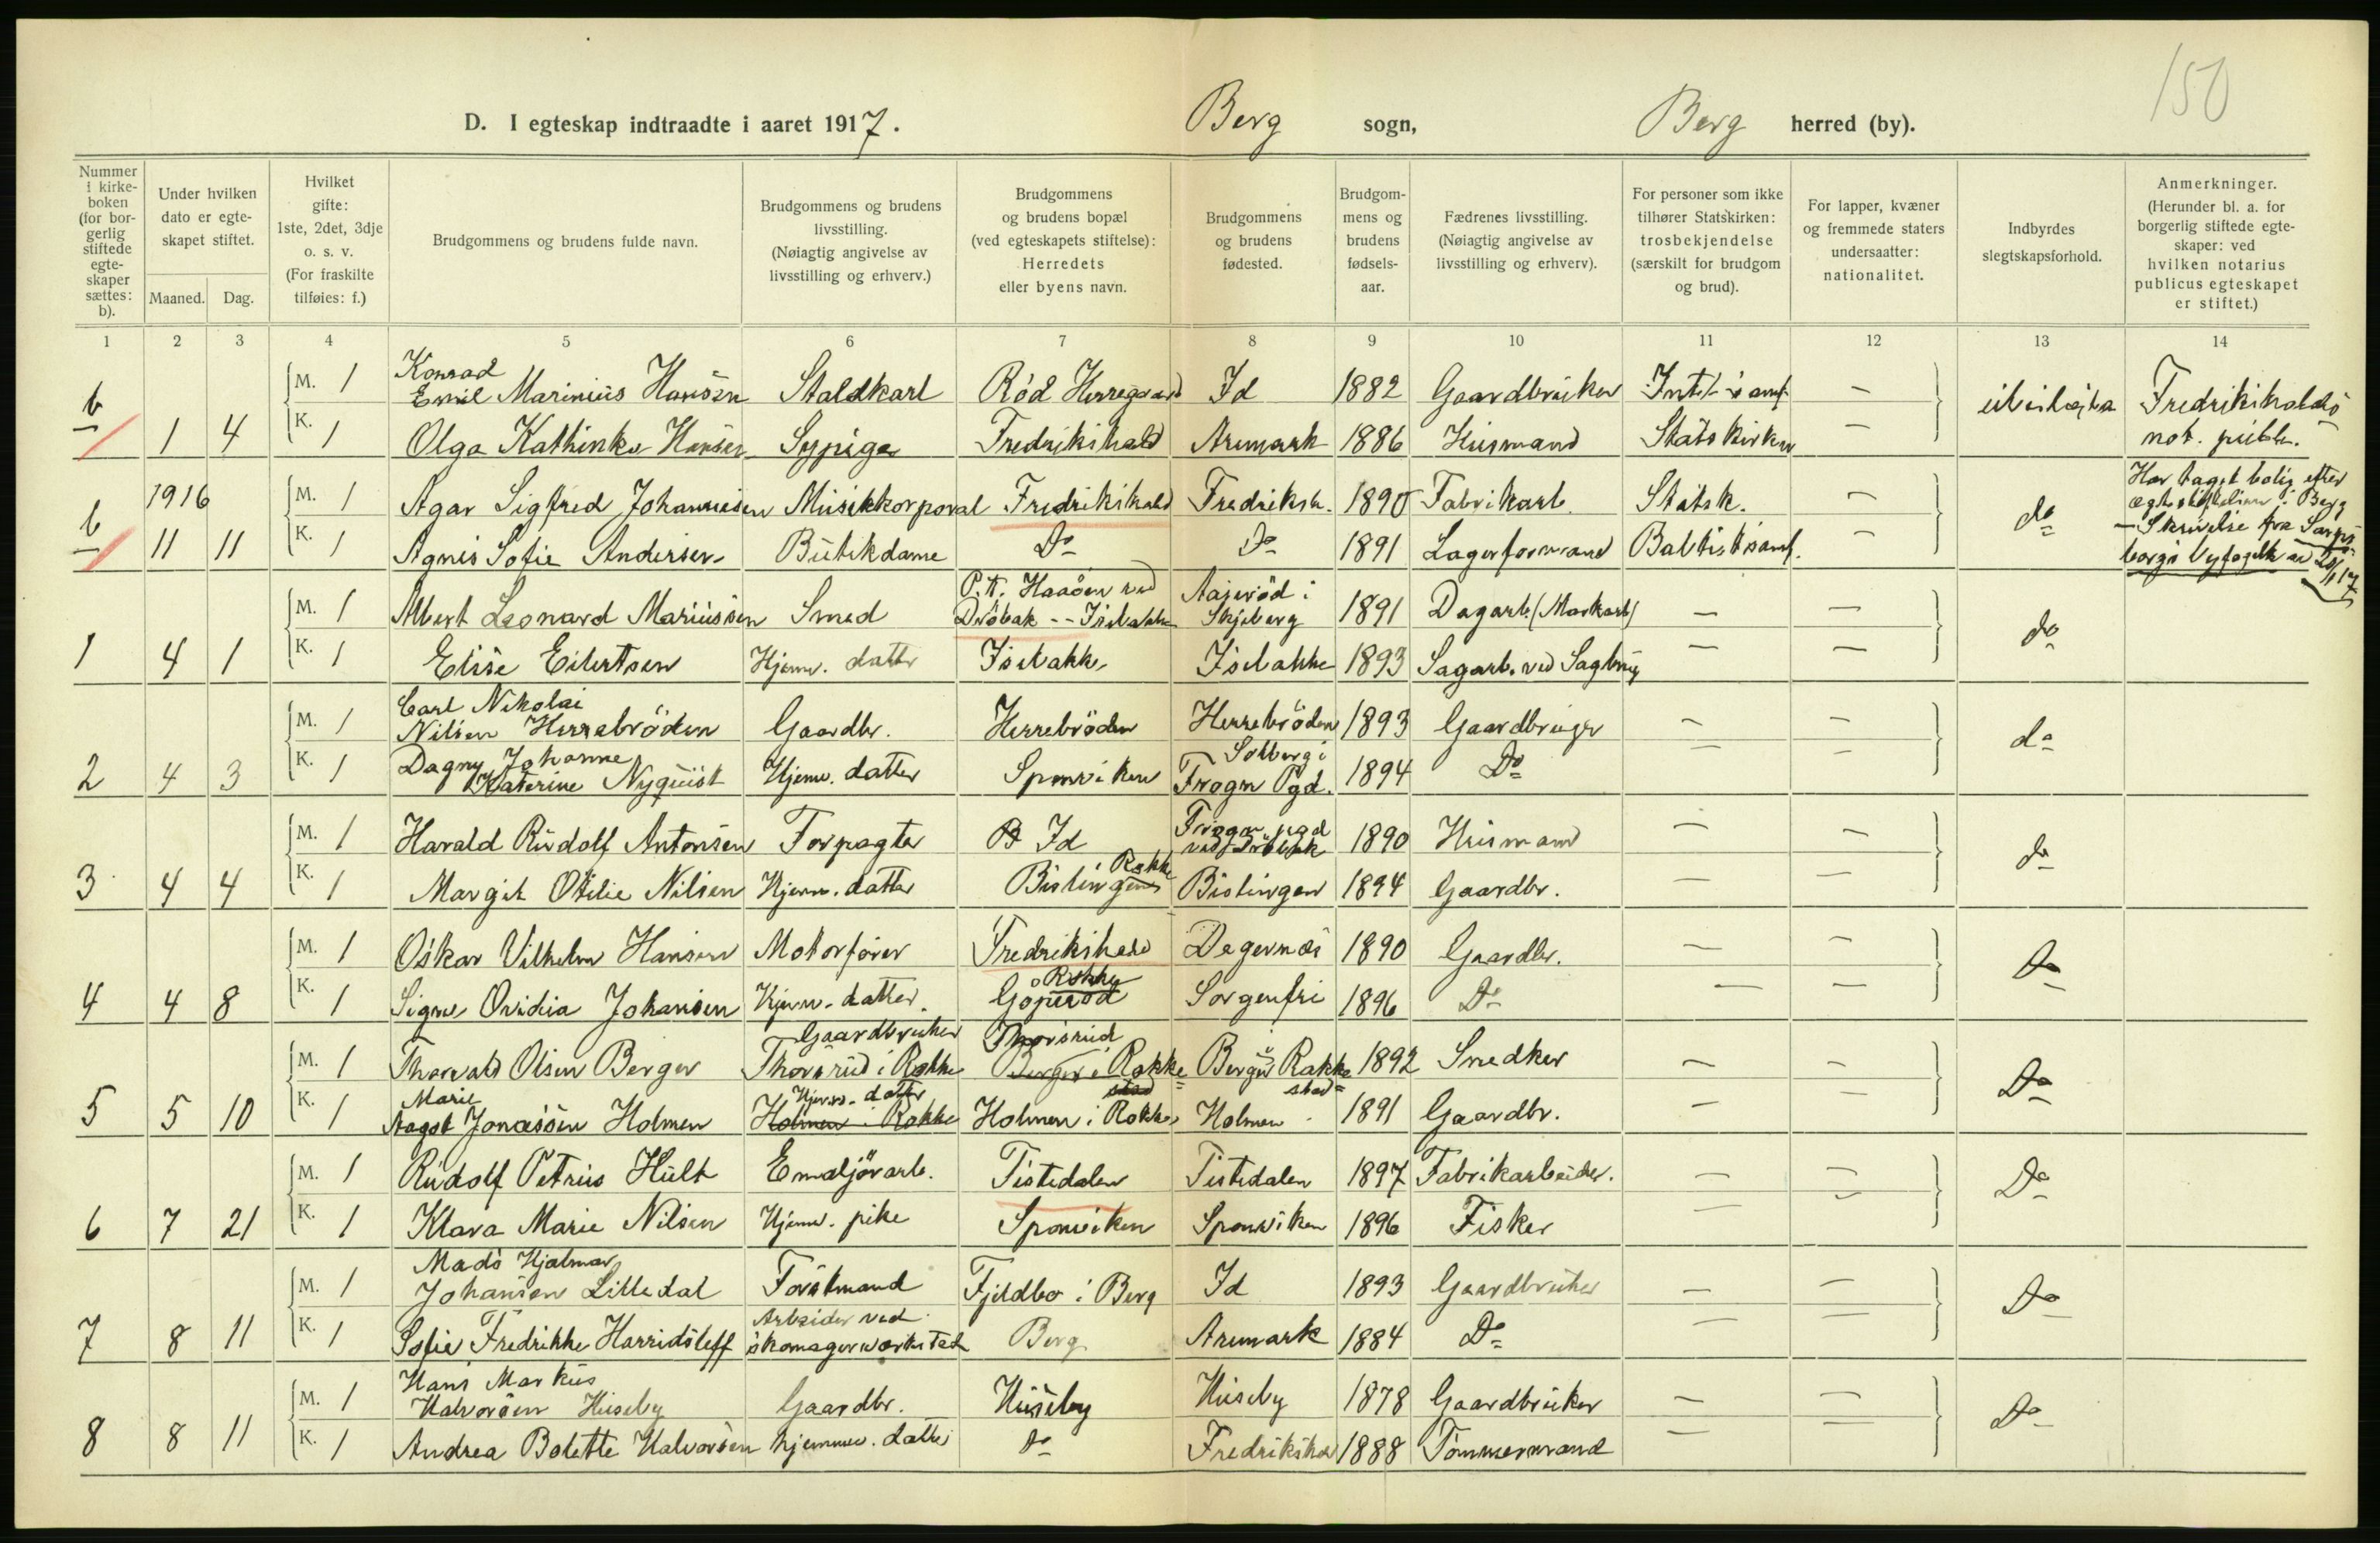 150
D. I egteskap indtraadte i aaret 1917. Berg sogn, Berg herred (by).
Nummer i kirke-boken (for bor-gerlig stiftede egte-skaper sættes: b).
Under hvilken dato er egte-skapet stiftet.
Maaned. Dag.
Hvilket gifte: 1ste, 2det, 3dje o. s. v. (For fraskilte tilføies: f.)
Brudgommens og brudens fulde navn.
Brudgommens og brudens livsstilling. (Nøiagtig angivelse av livsstilling og erhverv.)
Brudgommens og brudens bopæl (ved egteskapets stiftelse): Herredets eller byens navn.
Brudgommens og brudens fødested.
Brudgom-mens og brudens fødsels-aar.
Fædrenes livsstilling. (Nøiagtig angivelse av livsstilling og erhverv).
For personer som ikke tilhører Statskirken: trosbekjendelse (særskilt for brudgom og brud).
For lapper, kvæner og fremmede staters undersaatter: nationalitet.
Indbyrdes slegtskapsforhold.
Anmerkninger. (Herunder bl. a. for borgerlig stiftede egte-skaper: ved hvilken notarius publicus egteskapet er stiftet.)
1 2 3 4 5 6 7 8 9 10 11 12 13 14
M. 1 Konrad Emil Marinius Hansen Staldkarl Rød Herregaard Id 1882 Gaardbruker — Fredrikshalds
b 1 4 K. 1 Olga Kathinka Hansen Sypige Fredrikshald Aremark 1886 Husmand Statskirken — not. publ.
1916 M. 1 Agar Sigfred Johannesen Musikkorporal Fredrikshald Fredriksh. 1890 Fabrikarb. Statsk. — do Har taget bolig efter
b 11 11 K. 1 Agnes Sofie Andersen Butikdame Do Do 1891 Lagerformand Babtistsamf. — Skrivelse fra Sarps-borgs byfogd
M. 1 Albert Leonard Mariussen Smed Drøbak -- Isebakke Skjeberg 1891 Dagarb. — — do
1 4 1 K. 1 Elise Eilertsen Hjemv. datter Isebakke Isebakke 1893 Sagarb. ved Sagbrug — —
M. 1 Carl Nikolai Nilsen Herrebröden Gaardbr. Herrebröden Herrebröden 1893 Gaardbruger — — do
2 4 3 K. 1 Dagny Johanne Katerine Nyquist Hjemv. datter Sponviken Solberg i Frogn Pgd. 1894 Do — —
M. 1 Harald Rudolf Antonsen Forpagter Id Frogn pgd ved Drøbak 1890 Husmand — — do
3 4 4 K. 1 Margit Otilie Nilsen Hjemv. datter Bislingen Rokke Bislingen 1894 Gaardbr. — —
M. 1 Oskar Vilhelm Hansen Motorfører Fredrikshald Degernæs 1890 Gaardbr. — — Do
4 4 8 K. 1 Signe Ovidia Johansen Hjemv. datter Gøperød Rokke Sorgenfri 1896 Do — —
M. 1 Thorvald Olsen Berger Gaardbruker Thorsrud i Rokke Thorsrud Berger i Rokke Berger i Rokke 1892 Snedker — — Do
5 5 10 K. 1 Marie Aagot Jonassen Holmen Hjemv. datter Holmen i Rokke Holmen i Rokke Holmen 1891 Gaardbr. — —
M. 1 Rudolf Petrus Hult Emaljörarb. Tistedalen Tistedalen 1897 Fabrikarbeider. — — Do
6 7 21 K. 1 Klara Marie Nilsen Hjemv. pike Sponviken Sponviken 1896 Fisker — —
M. 1 Mads Hjalmar Johansen Lilledal Forstmand Fjeldbo i Berg Id 1893 Gaardbruker — — Do
7 8 11 K. 1 Sofie Fredrikke Harridsleff Arbeider ved skomagerværksted Berg Aremark 1884 Do — —
M. 1 Hans Markus Halvorsen Huseby Gaardbr. Huseby Huseby 1878 Gaardbruker — — Do
8 8 11 K. 1 Andrea Bolette Halvorsen hjemmev. datter do Fredrikshald 1888 Tømmermand — —